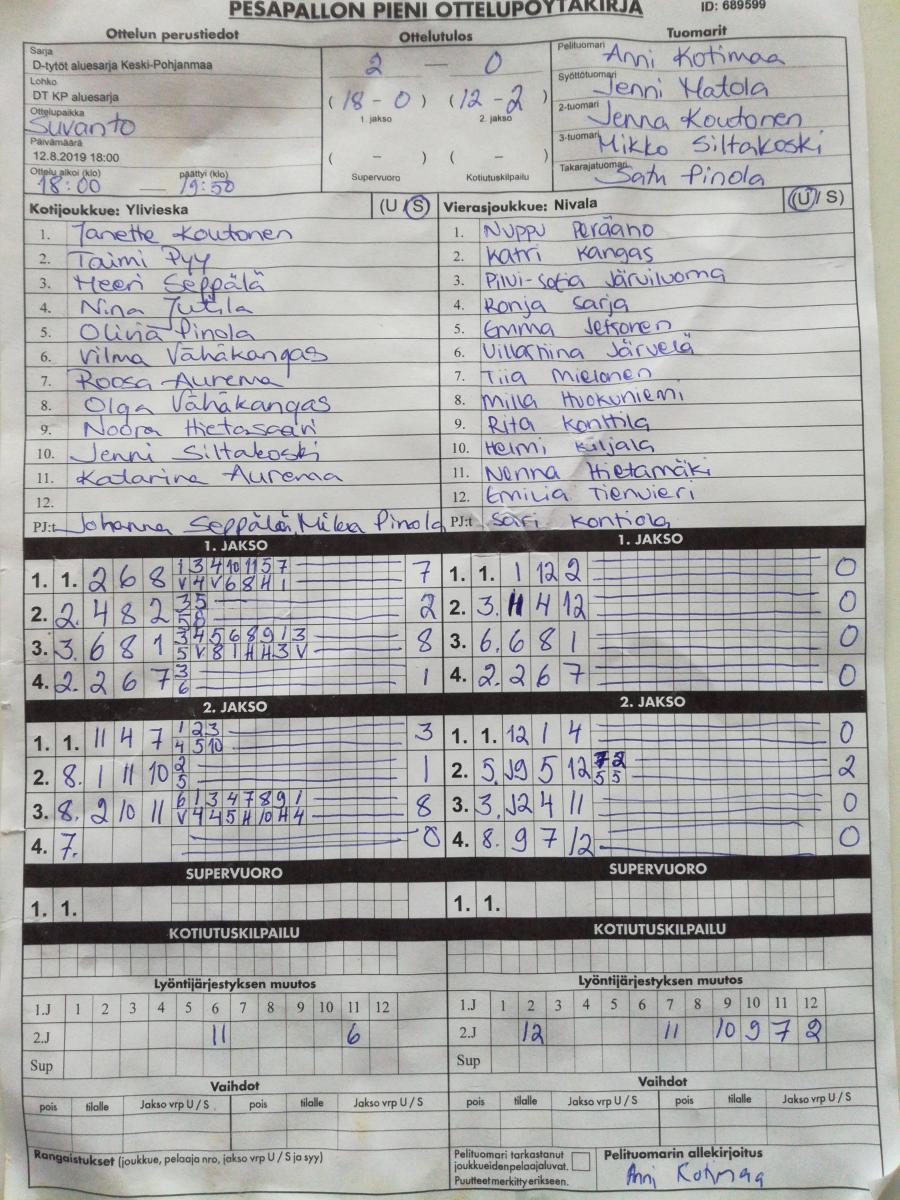 PESÄPALLON PIENI OTTELUPÖYTÄKIRJA ID: 689599
Ottelun perustiedot Ottelutulos Tuomarit
Sarja
D-tytöt aluesarja Keski-Pohjanmaa
Lohko
DT KP aluesarja
Ottelupaikka
Suvanto
Päivämäärä
12.8.2019 18:00
Ottelu alkoi (klo) päättyi (klo)
18:00 — 19:50
2 — 0
(18 - 0) (12 - 2)
1. jakso 2. jakso
( - ) ( - )
Supervuoro Kotiutuskilpailu
Pelituomari Anni Kotimaa
Syöttötuomari Jenni Matola
2-tuomari Jenna Koutonen
3-tuomari Mikko Siltakoski
Takarajatuomari Satu Pinola
Kotijoukkue: Ylivieska (U / S)
1. Janette Koutonen
2. Taimi Pyy
3. Heeri Seppälä
4. Nina Jutila
5. Olivia Pinola
6. Vilma Vähäkangas
7. Roosa Aurema
8. Olga Vähäkangas
9. Noora Hietasaari
10. Jenni Siltakoski
11. Katarina Aurema
12.
PJ:t Johanna Seppälä, Mika Pinola
Vierasjoukkue: Nivala (U / S)
1. Nuppu Peräaho
2. Katri Kangas
3. Pilvi-Sofia Järviluoma
4. Ronja Sarja
5. Emma
6. Järvelä
7. Tiia Mielonen
8. Milla Huokuniemi
9. Rita Konttila
10. Helmi Kiljala
11. Nenna Hietamäki
12. Emilia Tienvieri
PJ:t Sari Kontiola
1. JAKSO
1. 1. 2 6 8 1 3 4 10 11 5 7 7
V 4 V 6 8 H 1
2. 2. 4 8 2 3 5 2
5 8
3. 3. 6 8 1 3 4 5 6 8 9 1 3 8
5 V 8 1 H H 3 V
4. 2. 2 6 7 3 1
6
1. JAKSO
1. 1. 1 12 2 0
2. 3. 11 4 12 0
3. 6. 6 8 1 0
4. 2. 2 6 7 0
2. JAKSO
1. 1. 11 4 7 1 2 3 3
4 5 10
2. 8. 1 11 10 2 1
5
3. 8. 2 10 11 6 1 3 4 7 8 9 1 8
V 4 4 5 H 10 H 4
4. 7. 0
2. JAKSO
1. 1. 12 1 4 0
2. 5. 5 12 7 2 2
5 5
3. 3. 4 11 0
4. 8. 9 7 12 0
SUPERVUORO SUPERVUORO
1. 1. 1. 1.
KOTIUTUSKILPAILU KOTIUTUSKILPAILU
Lyöntijärjestyksen muutos
1.J 1 2 3 4 5 6 7 8 9 10 11 12
2.J 11 6
Sup
Lyöntijärjestyksen muutos
1.J 1 2 3 4 5 6 7 8 9 10 11 12
2.J 12 11 10 9 7 2
Sup
Vaihdot Vaihdot
pois tilalle Jakso vrp U / S pois tilalle Jakso vrp U / S
pois tilalle Jakso vrp U / S pois tilalle Jakso vrp U / S
Rangaistukset (joukkue, pelaaja nro, jakso vrp U / S ja syy)
Pelituomari tarkastanut
joukkueiden pelaajaluvat.
Puutteet merkitty erikseen.
Pelituomarin allekirjoitus
Anni Kotimaa